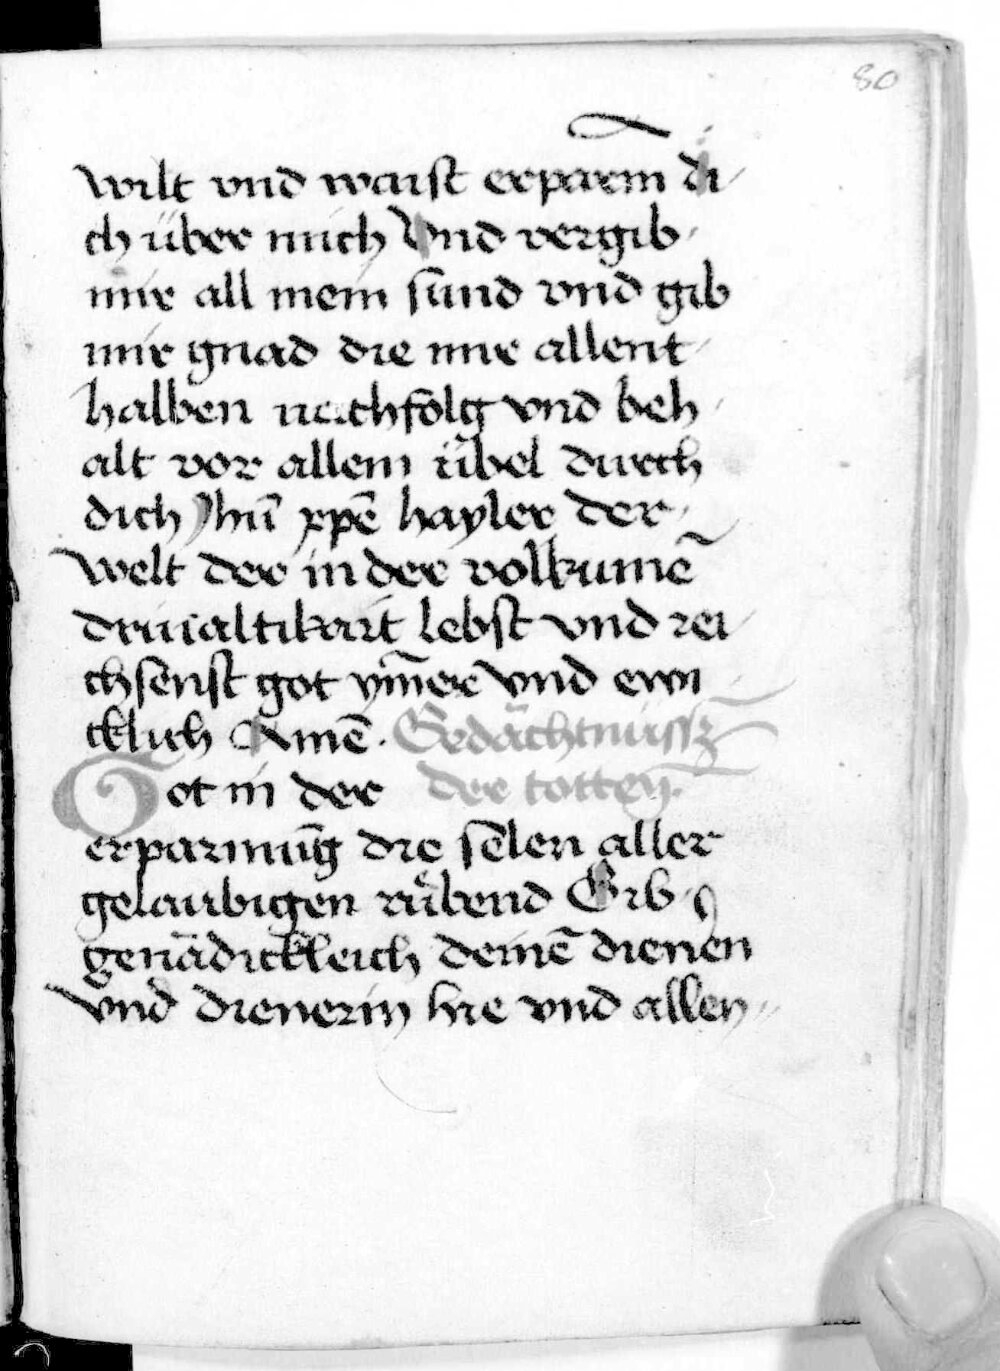 80
wilt vnd waist erparem di
ch über mich Vnd vergib
mir all mein sünd vnd gib
mir gnad die mir allent
halben nachfolg vnd beh
alt vor allem übel durch
dich Jhū xpē hayler der
welt der in der volkumē
driualtikait lebst vnd rei
chsenst got ym̄er vnd ewi
cklich Amē. Gedächtnüssz
Got in der der totten.
erparmūg die selen aller
gelaubigen rübend Gib
genädickleich deinē dienen
vnd dienerin hie vnd allen